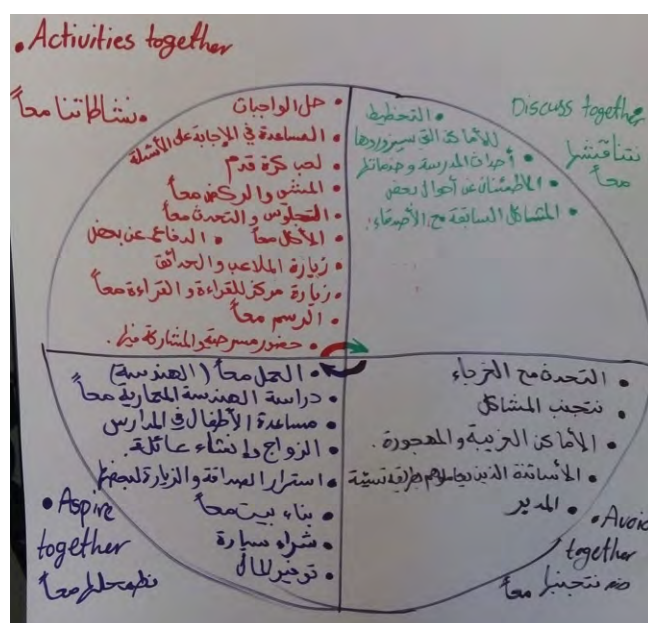 • Activities together
• نشاطاتنا معاً
• حل الواجبات
• المساعدة في الإجابة على الأسئلة
• لعب كرة قدم
• المشي والركض معاً
• التجلوس والتحدث معاً
• الأكل معاً • الدفاع عن بعض
• زيارة الملاعب والحدائق
• زيارة مركز للقراءة والقراءة معاً
• الرسم معاً
• حضور مسرحية والمشاركة فيها.
Discuss together •
نتناقشها
معاً
• التخطيط
للأماكن التي سيزوروها
• أحداث المدرسة وخدماتها
• الاطمئنان عن أحوال بعض
• المشاكل السابقة مع الأصدقاء.
• العمل معاً (الهندسة)
• دراسة الهندسة المعمارية معاً
• مساعدة الأطفال في المدارس
• الزواج وإنشاء عائلة.
• استرار الصداقة والزيارة لبعضها
• بناء بيت معاً
• شراء سيارة
• توفير المال
• Aspire
together
معاً
• التحدة مع الغرباء
• نتجنب المشاكل
• الأماكن الغريبة والمهجورة.
• الأساتذة الذين يعاملوهم بطريقة سيئة
• المدير
• Avoid
together
نتجنبها معاً